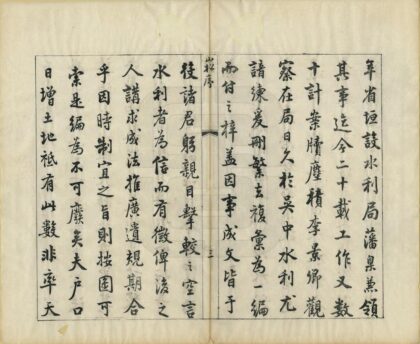 年省垣設水利局藩臬兼領
其事迄今二十載工作又數
十計案牘塵積李景卿觀
察在局日久於吳中水利尤
諳練爰刪繁去複彙為一編
而付之梓蓋因事成文皆于
山松序
三
役諸君躬親目擊較之空言
水利者為信而有徵俾後之
人講求成法推廣遺規期合
乎因時制宜之旨則按圖可
索是編為不可廢矣夫戶口
日增土地祗有此數非率天